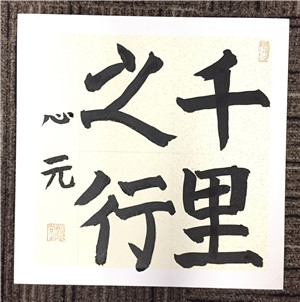 千里
之行
心元